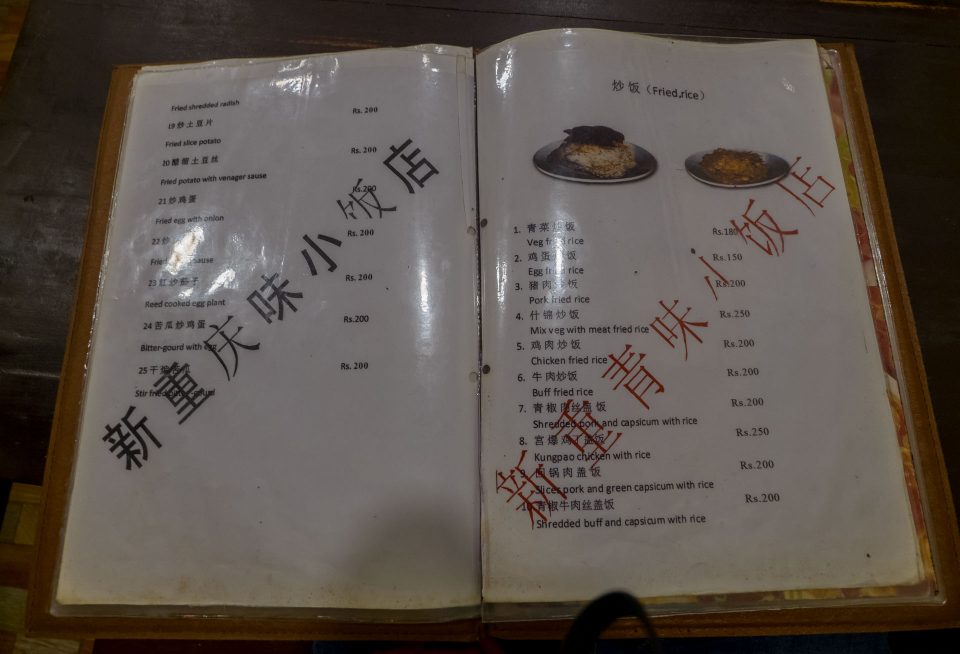 Fried shredded radish
19 炒土豆片 Rs. 200
Fried slice potato
20 醋留土豆丝 Rs. 200
Fried potato with venager sause
21 炒鸡蛋 Rs.200
Fried egg with onion
22 炒 Rs. 200
Fried sause
23 红炒茄子 Rs. 200
Reed cooked egg plant
24 苦瓜炒鸡蛋 Rs.200
Bitter-gourd with egg
25 干煸苦瓜 Rs. 200
Stir fried bitter-gourd
新重庆味小饭店
炒饭（Fried.rice）
1. 青菜炒饭 Rs.180
Veg fried rice
2. 鸡蛋炒饭 Rs.150
Egg fried rice
3. 猪肉炒饭 Rs.200
Pork fried rice
4. 什锦炒饭 Rs.250
Mix veg with meat fried rice
5. 鸡肉炒饭 Rs.200
Chicken fried rice
6. 牛肉炒饭 Rs.200
Buff fried rice
7. 青椒肉丝盖饭 Rs.200
Shredded pork and capsicum with rice
8. 宫爆鸡丁盖饭 Rs.250
Kungpao chicken with rice
9. 回锅肉盖饭 Rs.200
Slices pork and green capsicum with rice
10. 青椒牛肉丝盖饭 Rs.200
Shredded buff and capsicum with rice
新重青味小饭店